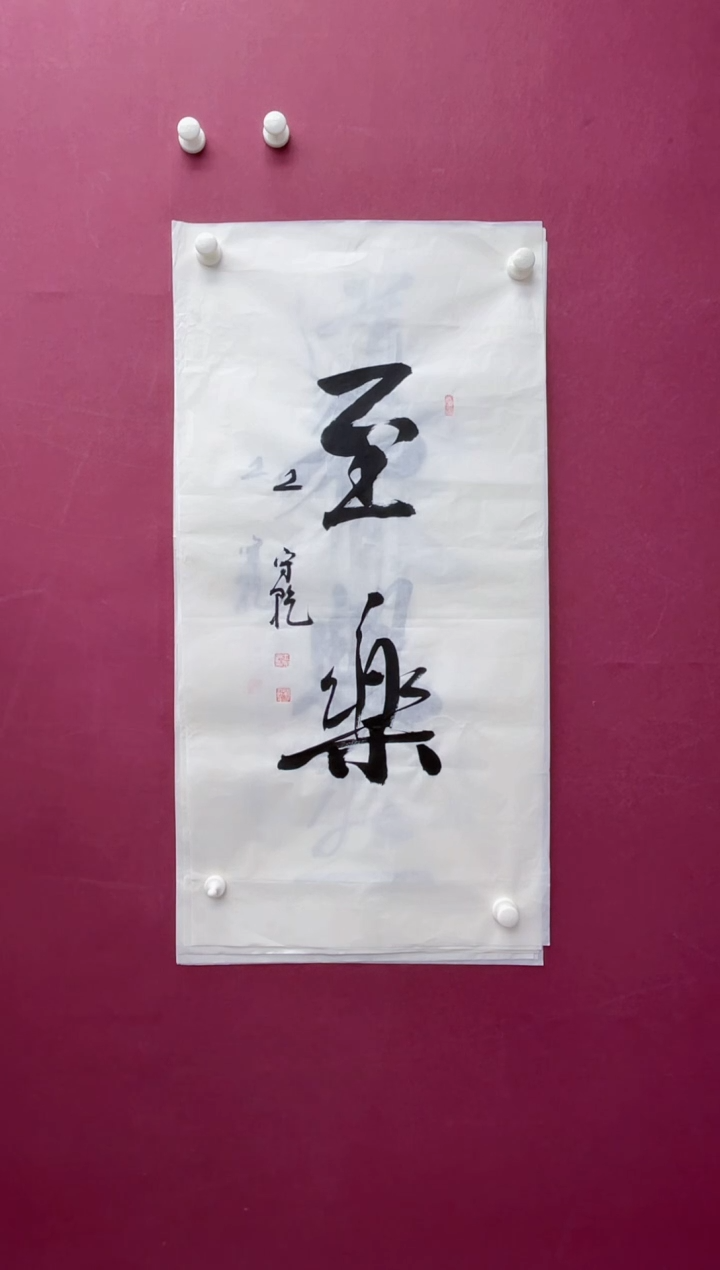 至樂
守乾